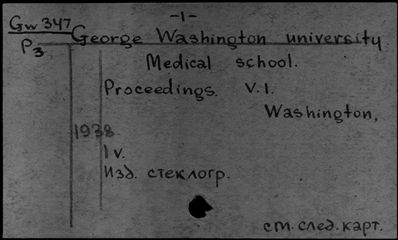 -1-
Gw 347
P3
George Washington university
Medical school.
Proceedings. V.1.
Washington,
1938
1 v.
Изд. стеклогр.
см. след. карт.